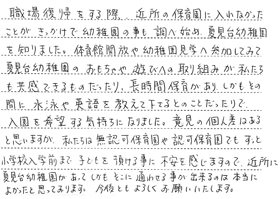 職場復帰をする際、近所の保育園に入れなかった
ことがきっかけで幼稚園の事も調べ始め、夏見台幼稚園
を知りました。体育館開放や幼稚園見学へ参加してみて
夏見台幼稚園のおもちゃや遊びへの取り組みが私たち
も共感できるものだったり、長時間保育があり、しかもその
間に水泳や英語を教えて下さるとのことだったりで
入園を希望する気持ちになりました。意見の個人差はある
と思いますが、私たちは無認可保育園や認可保育園でもずっと
小学校入学前まで子どもを預ける事に不安を感じますので、近所に
夏見台幼稚園があって、しかもそこに通わせる事が出来るのは本当に
よかったと思っております。今後ともよろしくお願いいたします。